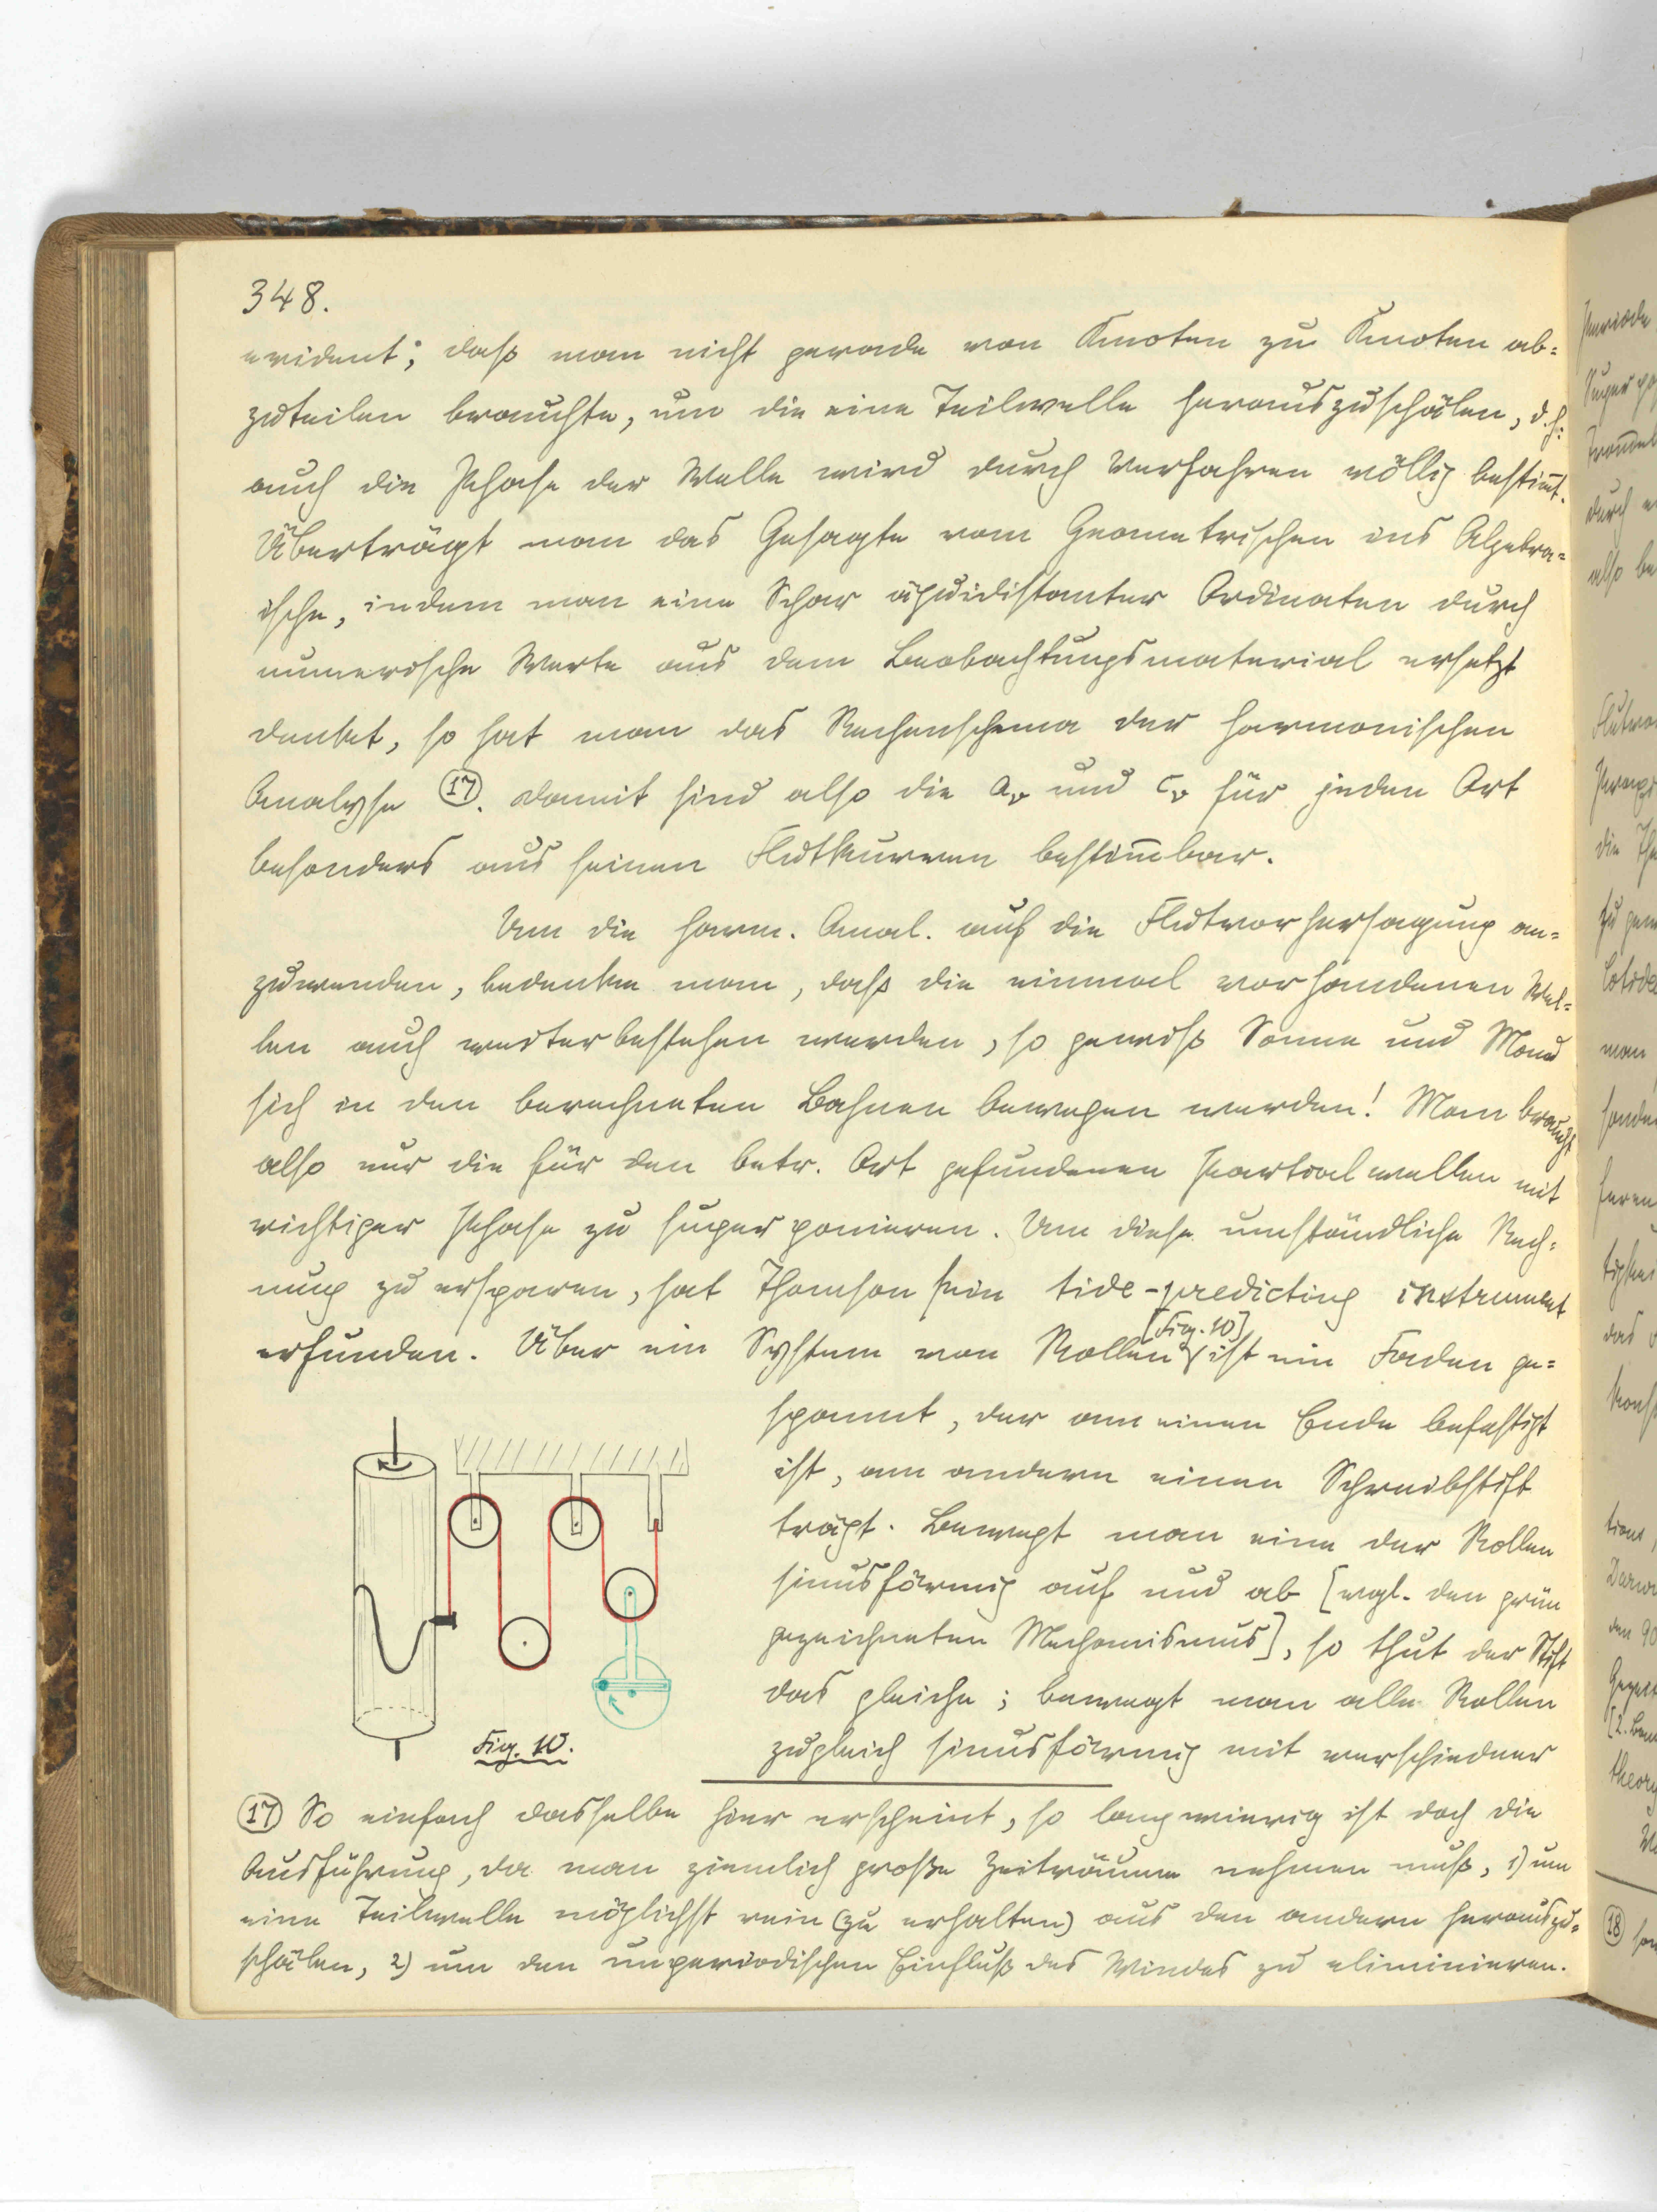 348.
evident; daß man nicht gerade von Knoten zu Knoten ab=
zuteilen brauchte, um die eine Teilwelle herauszuschälen, d.h.
auch die Phase der Welle wird durch Verfahren völlig bestim̅t.
Überträgt man das Gesagte vom Geometrischen ins Algebra=
ische, indem man eine Schar äquidistanter Ordinaten durch
numerische Werte aus dem Beobachtungsmaterial ersetzt
denkt, so hat man das Rechenschema der harmonischen
Analyse ⑰. Damit sind also die aᵥ und cᵥ für jeden Ort
besonders aus seinen Flutkurven bestim̅bar.
Um die harm. Anal. auf die Flutvorhersagung an=
zuwenden, bedenke man, daß die einmal vorhandenen Wel=
len auch weiterbestehen werden, so gewiß Sonne und Mond
sich in den berechneten Bahnen bewegen werden! Man braucht
also nur die für den betr. Ort gefundenen Partialwellen mit
richtiger Phase zu superponieren. Um diese umständliche Rech=
nung zu ersparen, hat Thomson sein tide-predicting instrument
erfunden. Über ein System von Rollen [Fig. 10] ist ein Faden ge=
spannt, der am einen Ende befestigt
ist, am andern einen Schreibstift
trägt. Bewegt man eine der Rollen
sinusförmig auf und ab [vgl. den grün
gezeichneten Mechanismus], so thut der Stift
das gleiche; bewegt man alle Rollen
zugleich sinusförmig mit verschiedner
Fig. 10.
⑰ So einfach dasselbe hier erscheint, so langwierig ist doch die
Ausführung, da man ziemlich große Zeiträume nehmen muß, 1) um
eine Teilwelle möglichst rein (zu erhalten) aus den andern herauszu=
schälen, 2) um den unperiodischen Einfluß des Windes zu eliminieren.